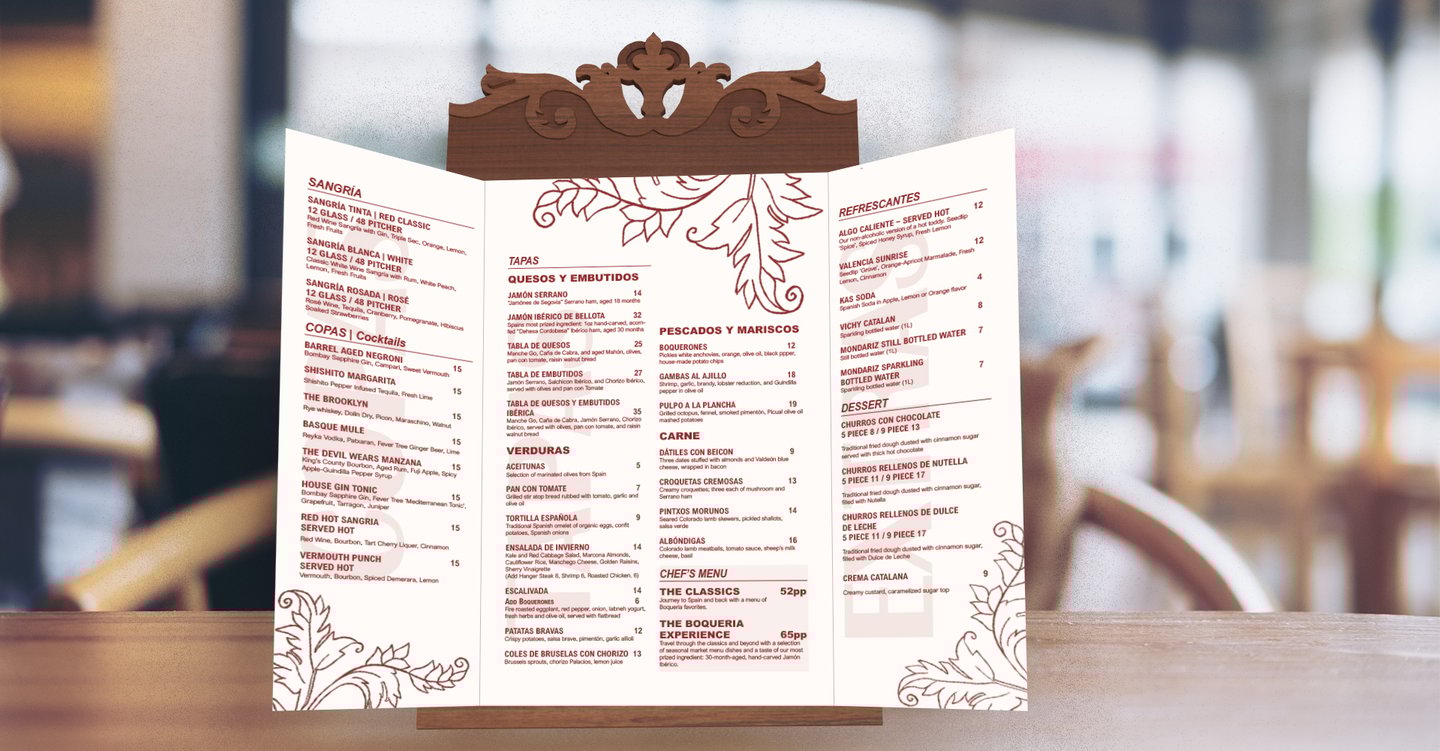 SANGRÍA
SANGRÍA TINTA | RED CLASSIC
12 GLASS / 48 PITCHER
Red Wine Sangria with Gin, Triple Sec, Orange, Lemon,
Fresh Fruits
SANGRÍA BLANCA | WHITE
12 GLASS / 48 PITCHER
Classic White Wine Sangria with Rum, White Peach,
Lemon, Fresh Fruits
SANGRÍA ROSADA | ROSÉ
12 GLASS / 48 PITCHER
Rosé Wine, Tequila, Cranberry, Pomegranate, Hibiscus
Soaked Strawberries
COPAS | Cocktails
BARREL AGED NEGRONI 15
Bombay Sapphire Gin, Campari, Sweet Vermouth
SHISHITO MARGARITA 15
Shishito Pepper Infused Tequila, Fresh Lime
THE BROOKLYN 15
Rye whiskey, Dolin Dry, Picon, Maraschino, Walnut
BASQUE MULE 15
Reyka Vodka, Patxaran, Fever Tree Ginger Beer, Lime
THE DEVIL WEARS MANZANA 15
King's County Bourbon, Aged Rum, Fuji Apple, Spicy
Apple-Guindilla Pepper Syrup
HOUSE GIN TONIC 15
Bombay Sapphire Gin, Fever Tree 'Mediterranean Tonic',
Grapefruit, Tarragon, Juniper
RED HOT SANGRIA
SERVED HOT 15
Red Wine, Bourbon, Tart Cherry Liquer, Cinnamon
VERMOUTH PUNCH 15
SERVED HOT
Vermouth, Bourbon, Spiced Demerara, Lemon
TAPAS
QUESOS Y EMBUTIDOS
JAMÓN SERRANO 14
"Jamónes de Segovia" Serrano ham, aged 18 months
JAMÓN IBÉRICO DE BELLOTA 32
Spains most prized ingredient: 1oz hand-carved, acorn-
fed "Dehesa Cordobesa" Ibérico ham, aged 30 months
TABLA DE QUESOS 25
Manche Go, Caña de Cabra, and aged Mahón, olives,
pan con tomate, raisin walnut bread
TABLA DE EMBUTIDOS 27
Jamón Serrano, Salchicon Ibérico, and Chorizo Ibérico,
served with olives and pan con Tomate
TABLA DE QUESOS Y EMBUTIDOS
IBÉRICA 35
Manche Go, Caña de Cabra, Jamón Serrano, Chorizo
Ibérico, served with olives, pan con tomate, and raisin
walnut bread
VERDURAS
ACEITUNAS 5
Selection of marinated olives from Spain
PAN CON TOMATE 7
Grilled stir atop bread rubbed with tomato, garlic and
olive oil
TORTILLA ESPAÑOLA 9
Traditional Spanish omelet of organic eggs, confit
potatoes, Spanish onions
ENSALADA DE INVIERNO 14
Kale and Red Cabbage Salad, Marcona Almonds,
Cauliflower Rice, Manchego Cheese, Golden Raisins,
Sherry Vinaigrette
(Add Hanger Steak 8, Shrimp 6, Roasted Chicken, 6)
ESCALIVADA 14
ADD BOQUERONES 6
Fire roasted eggplant, red pepper, onion, labneh yogurt,
fresh herbs and olive oil, served with flatbread
PATATAS BRAVAS 12
Crispy potatoes, salsa brava, pimentón, garlic allioli
COLES DE BRUSELAS CON CHORIZO 13
Brussels sprouts, chorizo Palacios, lemon juice
PESCADOS Y MARISCOS
BOQUERONES 12
Pickles white anchovies, orange, olive oil, black ppper,
house-made potato chips
GAMBAS AL AJILLO 18
Shrimp, garlic, brandy, lobster reduction, and Guindilla
pepper in olive oil
PULPO A LA PLANCHA 19
Grilled octopus, fennel, smoked pimentón, Picual olive oil
mashed potatoes
CARNE
DÁTILES CON BEICON 9
Three dates stuffed with almonds and Valdeón blue
cheese, wrapped in bacon
CROQUETAS CREMOSAS 13
Creamy croquettes; three each of mushroom and
Serrano ham
PINTXOS MORUNOS 14
Seared Colorado lamb skewers, pickled shallots,
salsa verde
ALBÓNDIGAS 16
Colorado lamb meatballs, tomato sauce, sheep's milk
cheese, basil
CHEF'S MENU
THE CLASSICS 52pp
Journey to Spain and back with a menu of
Boqueria favorites.
THE BOQUERIA
EXPERIENCE 65pp
Travel through the classics and beyond with a selection
of seasonal market menu dishes and a taste of our most
prized ingredient: 30-month-aged, hand-carved Jamón
Ibérico.
REFRESCANTES
ALGO CALIENTE – SERVED HOT 12
Our non-alcoholic version of a hot toddy. Seedlip
'Spice', Spiced Honey Syrup, Fresh Lemon
VALENCIA SUNRISE 12
Seedlip 'Grove', Orange-Apricot Marmalade, Fresh
Lemon, Cinnamon
KAS SODA 4
Spanish Soda in Apple, Lemon or Orange flavor
VICHY CATALAN 8
Sparkling bottled water (1L)
MONDARIZ STILL BOTTLED WATER 7
Still bottled water (1L)
MONDARIZ SPARKLING 7
BOTTLED WATER
Sparkling bottled water (1L)
DESSERT
CHURROS CON CHOCOLATE
5 PIECE 8 / 9 PIECE 13
Traditional fried dough dusted with cinnamon sugar
served with thick hot chocolate
CHURROS RELLENOS DE NUTELLA
5 PIECE 11 / 9 PIECE 17
Traditional fried dough dusted with cinnamon sugar,
filled with Nutella
CHURROS RELLENOS DE DULCE
DE LECHE
5 PIECE 11 / 9 PIECE 17
Traditional fried dough dusted with cinnamon sugar,
filled with Dulce de Leche
CREMA CATALANA 9
Creamy custard, caramelized sugar top